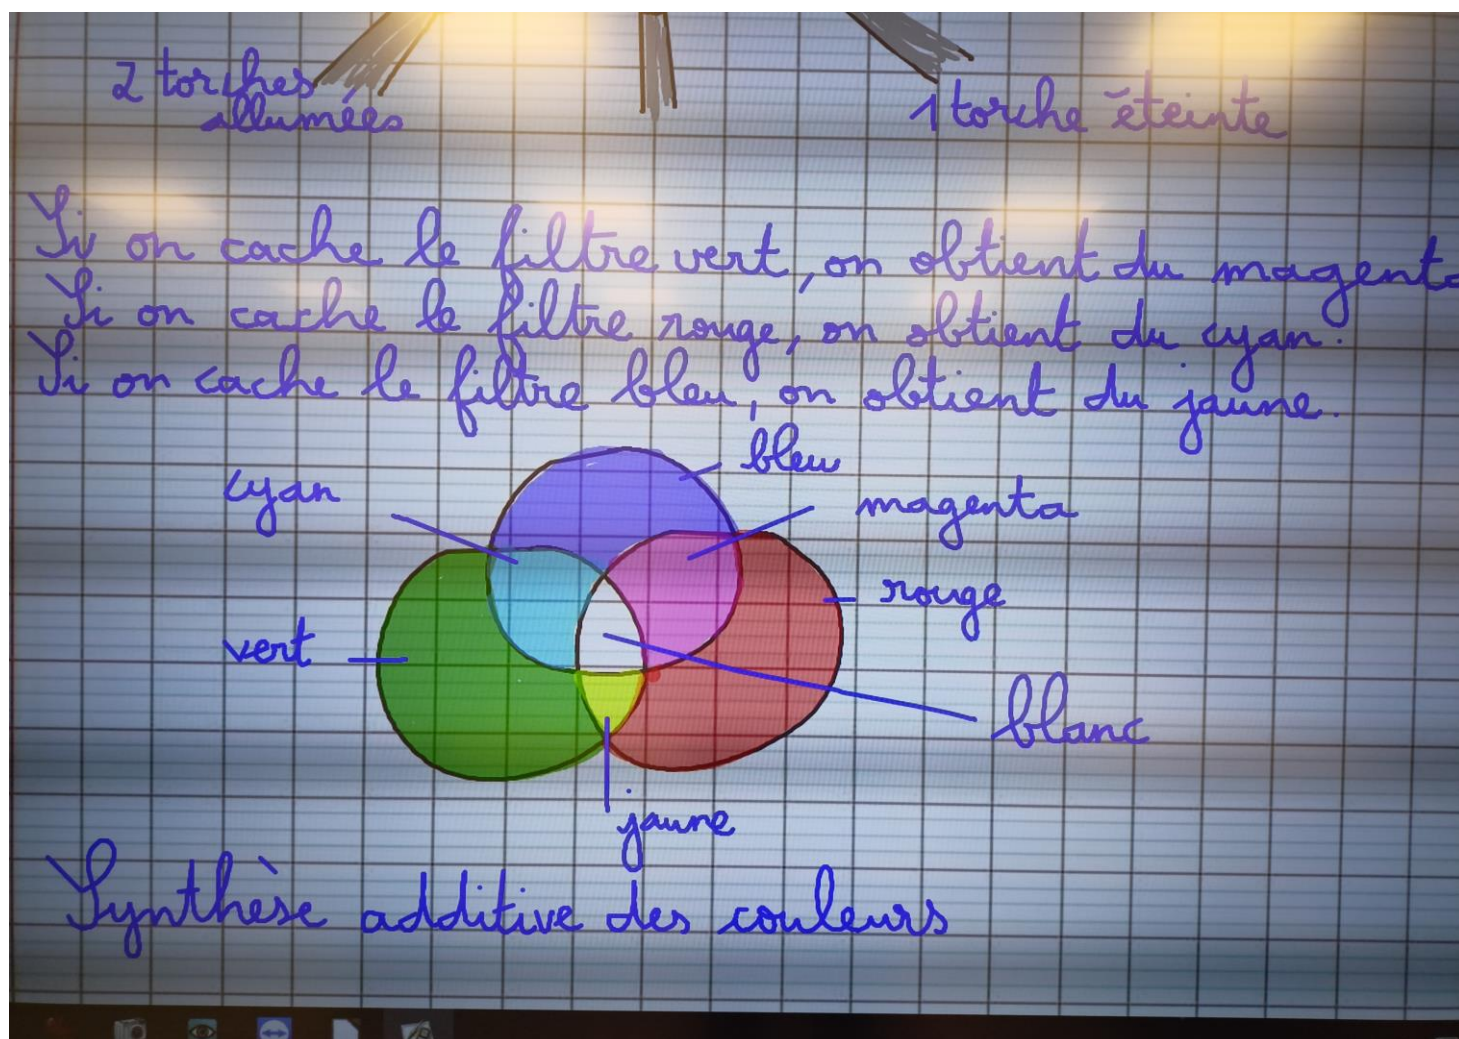 2 torches
allumées
1 torche éteinte
Si on cache le filtre vert, on obtient du magenta
Si on cache le filtre rouge, on obtient du cyan.
Si on cache le filtre bleu, on obtient du jaune.
bleu
cyan
magenta
rouge
vert
blanc
jaune
Synthèse additive des couleurs